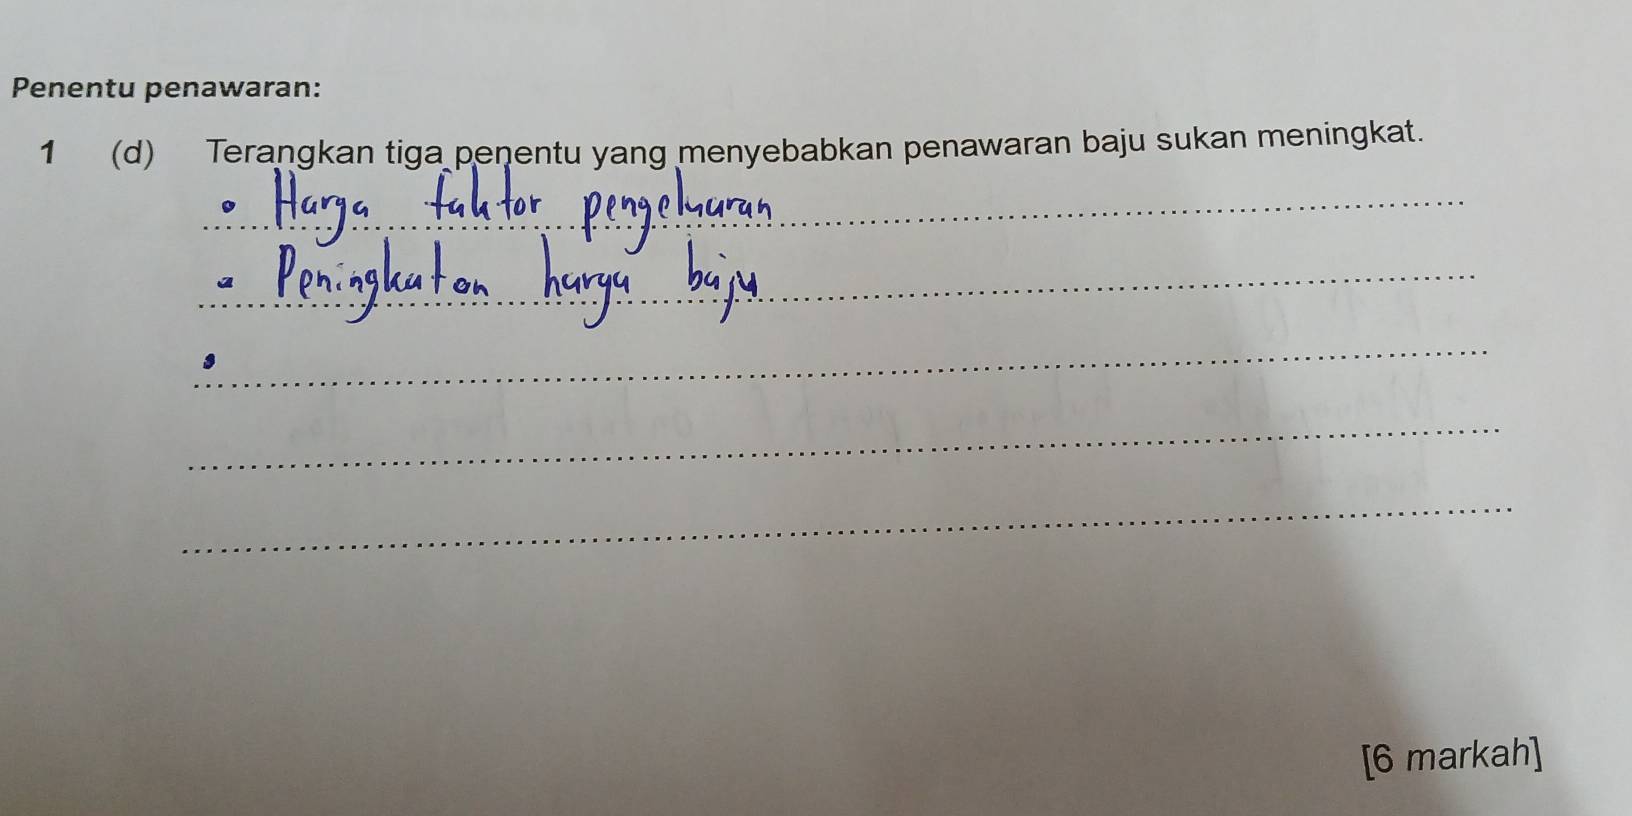 Penentu penawaran:
1 (d) Terangkan tiga penentu yang menyebabkan penawaran baju sukan meningkat.
• Harga faktor pengeluaran
• Peningkatan harga baju
•
[6 markah]